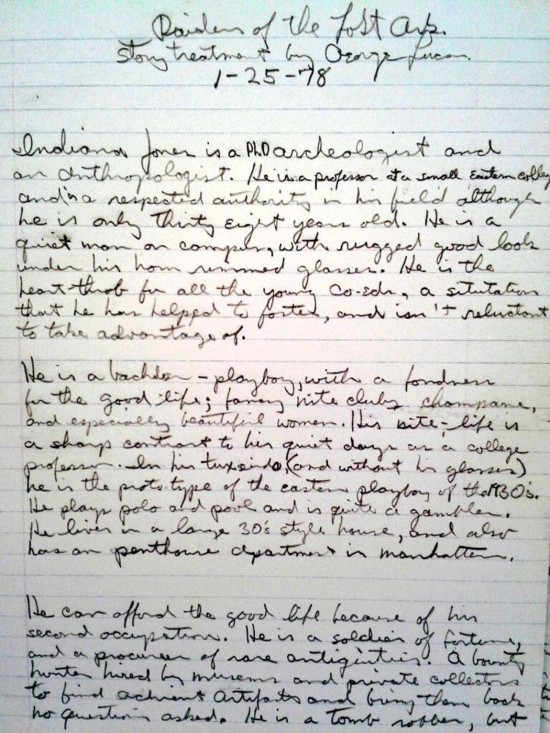 Raiders of the Lost Ark.
Story treatment by George Lucas.
1-25-78
Indiana Jones is a PhD archeologist and
an Anthropologist. He is a professor at a small Eastern colleg
and is a respected authority in his field although
he is only thirty eight years old. He is a
quiet man on campus, with rugged good look
under his horn rimmed glasses. He is the
heart-throb for all the young co-eds, a situtation
that he has helped to foster, and isn't reluctant
to take advantage of.
He is a bachelor - playboy, with a fondness
for the good life; fancy nite clubs, champane,
and especially beautiful women. His nite-life is
a sharp contrast to his quiet days as a college
professor. In his tuxsedo, (and without his glasses)
he is the proto-type of the eastern playboy of the 1930's.
He plays polo and pool and is quite a gambler.
He lives in a large 30's style house, and also
has an penthouse apartment in manhatten.
He can afford the good life because of his
second occupation. He is a soldier of fortune,
and a procurer of rare antiquities. A bounty
hunter hired by museums and private collectors
to find achient artifacts and bring them back
no questions asked. He is a tomb robber, but